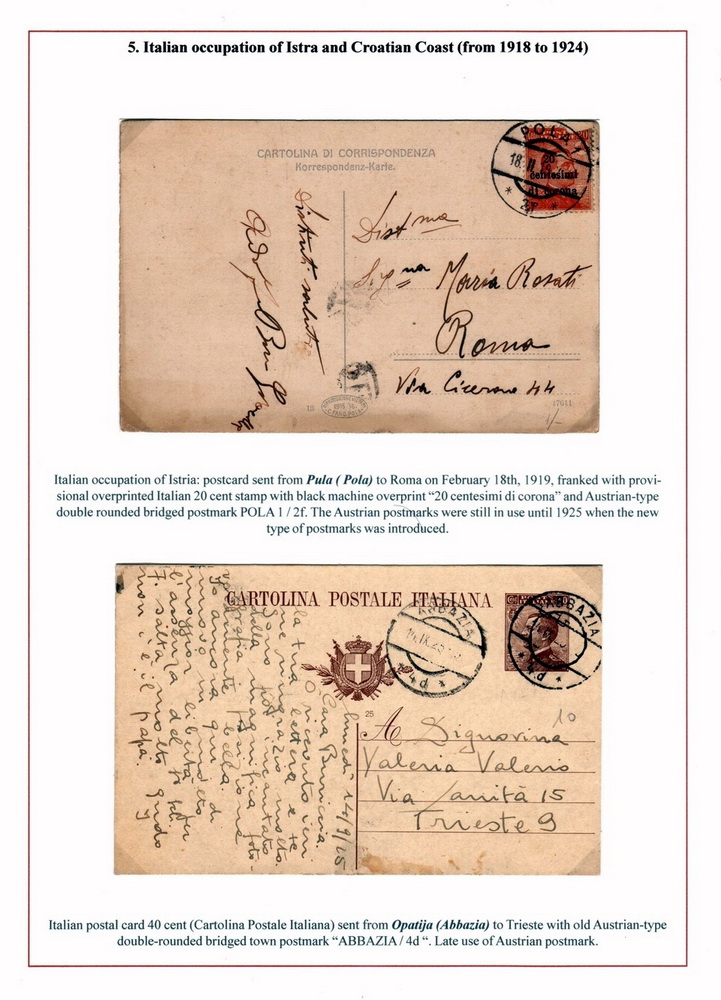 5. Italian occupation of Istra and Croatian Coast (from 1918 to 1924)
CARTOLINA DI CORRISPONDENZA
Korrespondenz-Karte.
POLA 1
18. II. 19
20
centesimi
di corona
* 2f *
Distinti saluti
Dist ma
Sig na Maria Rosati
Roma
Via Cicerone 44
Italian occupation of Istria: postcard sent from Pula ( Pola) to Roma on February 18th, 1919, franked with provi-
sional overprinted Italian 20 cent stamp with black machine overprint “20 centesimi di corona” and Austrian-type
double rounded bridged postmark POLA 1 / 2f. The Austrian postmarks were still in use until 1925 when the new
type of postmarks was introduced.
CARTOLINA POSTALE ITALIANA
ABBAZIA
14.IX.25
* 4d *
ABBAZIA
* 4d *
25
10
A Signorina
Valeria Valerio
Via Sanità 15
Trieste 9
lunedì 14/9/25
Cara
O ricevuto ieri
la tua lettera e te
ne ringrazio molto.
Sono incantato
della magnifica foto-
grafia
bella.
Italian postal card 40 cent (Cartolina Postale Italiana) sent from Opatija (Abbazia) to Trieste with old Austrian-type
double-rounded bridged town postmark “ABBAZIA / 4d “. Late use of Austrian postmark.